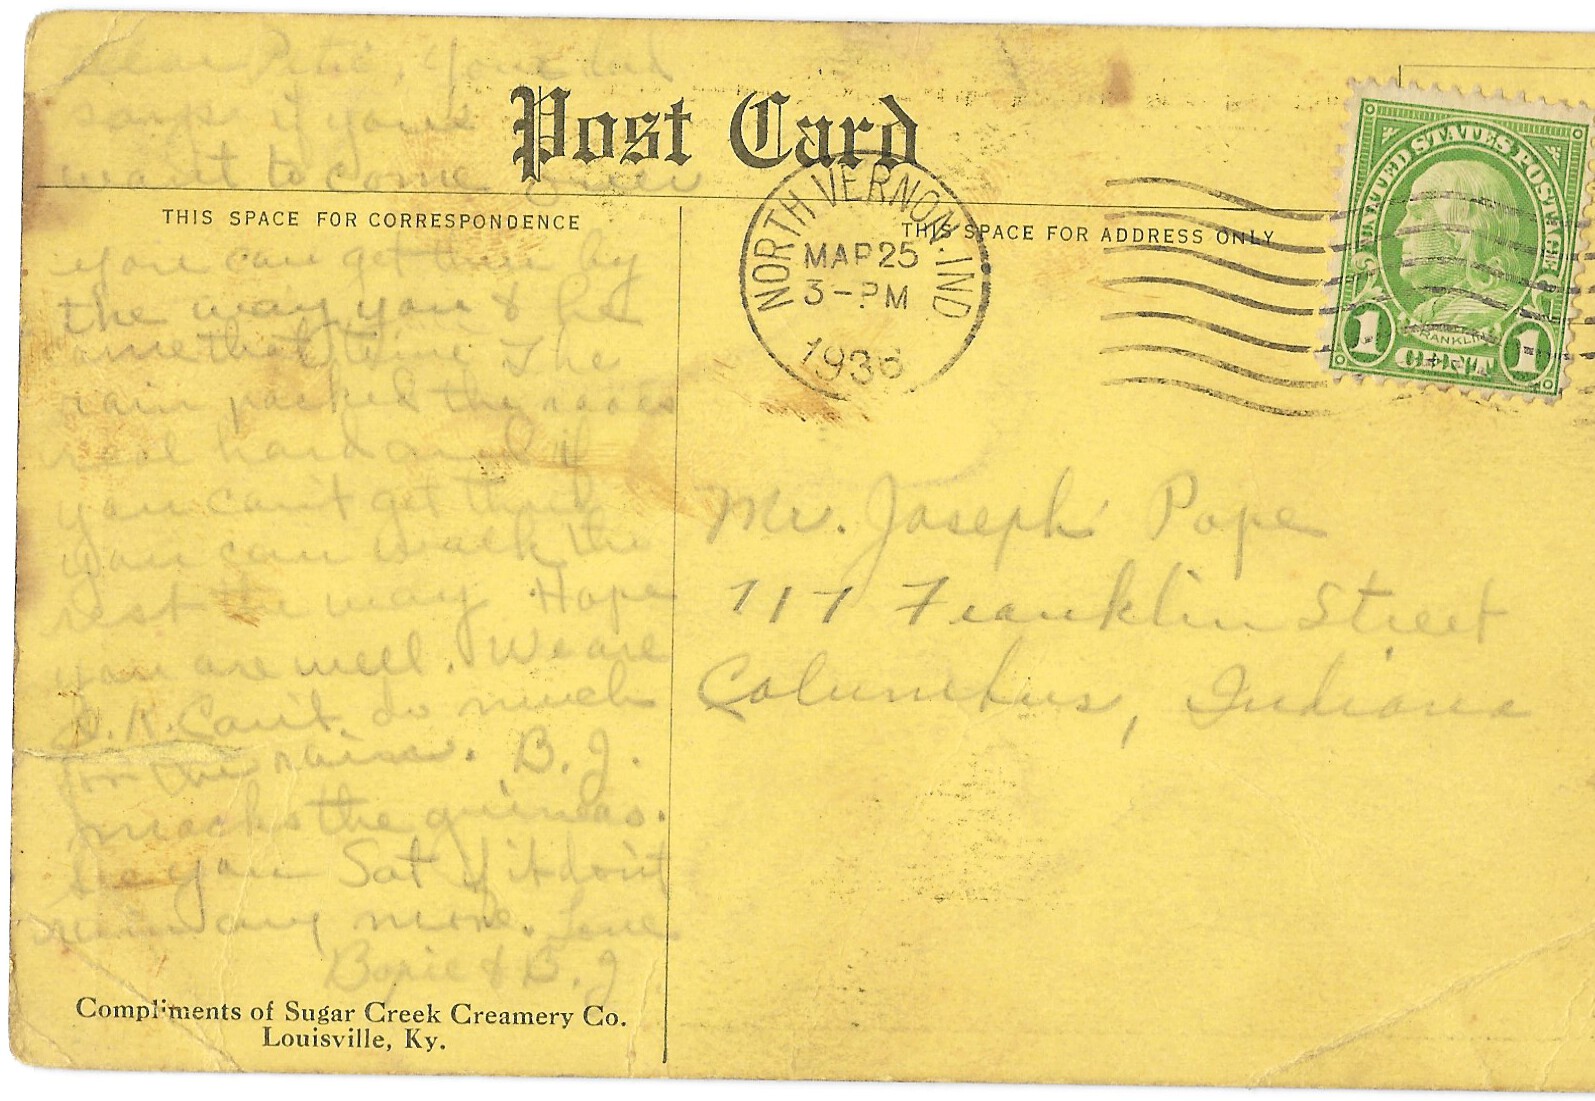 Dear Pete, Your dad
says if you
want to come over
Post Card
THIS SPACE FOR CORRESPONDENCE
THIS SPACE FOR ADDRESS ONLY
you can get thru by
the way you & he
time The
rain packed the roads
real hard and if
you can't get thru
you can walk the
rest the way Hope
you are well. We are
O.K. Can't do much
for the rain. B. J.
mocks the guineas.
See you Sat if it don't
rain any more. Love
& B. J
Compliments of Sugar Creek Creamery Co.
Louisville, Ky.
NORTH VERNON, IND
MAR 25
3-PM
1936
UNITED STATES POSTAGE
FRANKLIN
1 1
Mr. Joseph Pope
717 Franklin Street
Columbus, Indiana